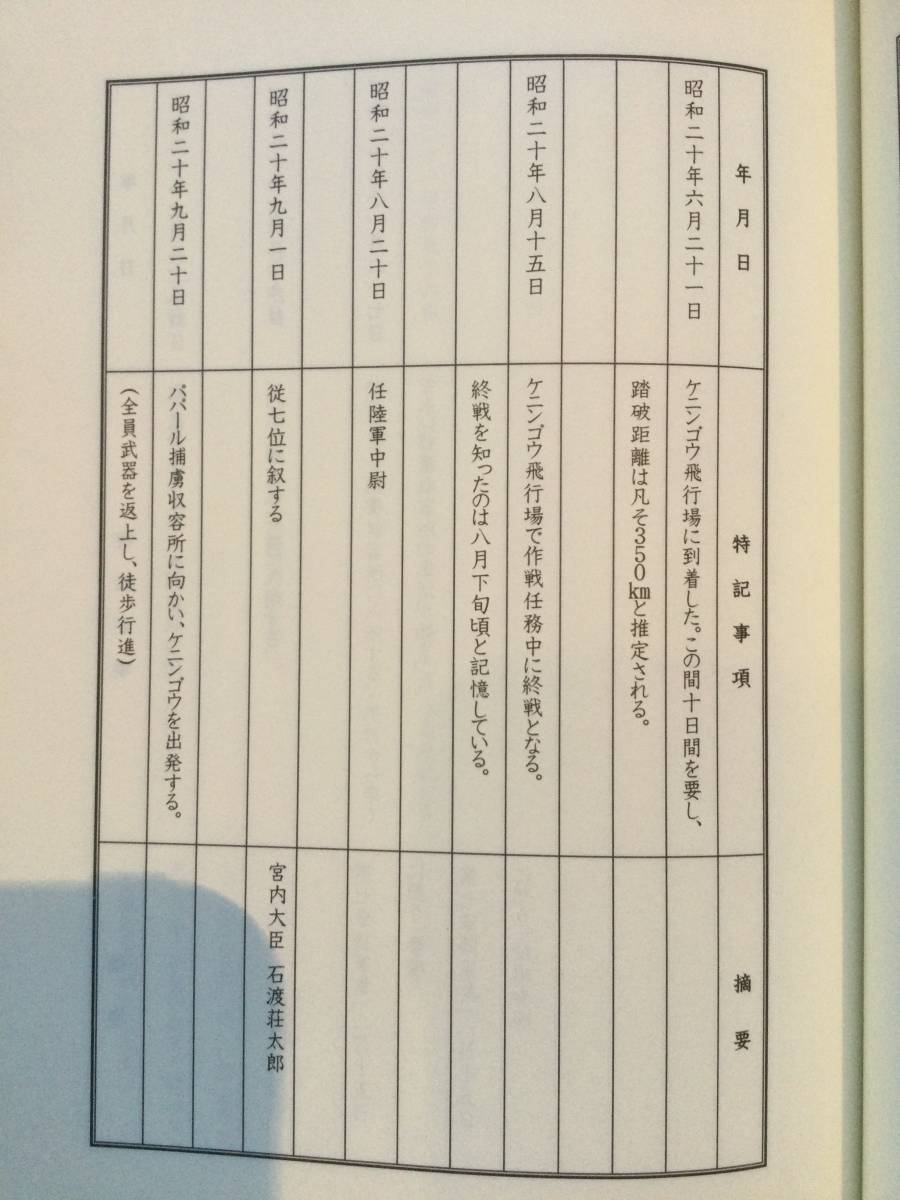 年月日
特記事項
摘要
昭和二十年六月二十一日
ケニンゴウ飛行場に到着した。この間十日間を要し、
踏破距離は凡そ350㎞と推定される。
昭和二十年八月十五日
ケニンゴウ飛行場で作戦任務中に終戦となる。
終戦を知ったのは八月下旬頃と記憶している。
昭和二十年八月二十日
任陸軍中尉
昭和二十年九月一日
従七位に叙する
宮内大臣 石渡荘太郎
昭和二十年九月二十日
パパール捕虜収容所に向かい、ケニンゴウを出発する。
(全員武器を返上し、徒歩行進)